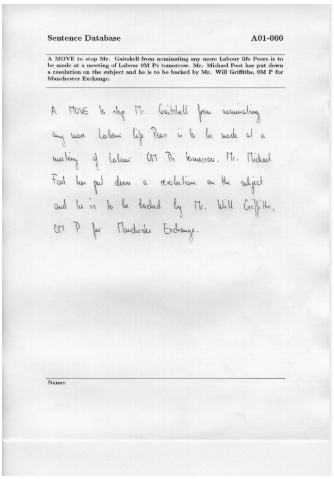 Sentence Database A01-000
A MOVE to stop Mr. Gaitskell from nominating any more Labour life Peers is to
be made at a meeting of Labour 0M Ps tomorrow. Mr. Michael Foot has put down
a resolution on the subject and he is to be backed by Mr. Will Griffiths, 0M P for
Manchester Exchange.
A MOVE to stop Mr. Gaitskell from nominating
any more Labour life Peers is to be made at a
meeting of Labour 0M Ps tomorrow. Mr. Michael
Foot has put down a resolution on the subject
and he is to be backed by Mr. Will Griffiths,
0M P for Manchester Exchange.
Name: